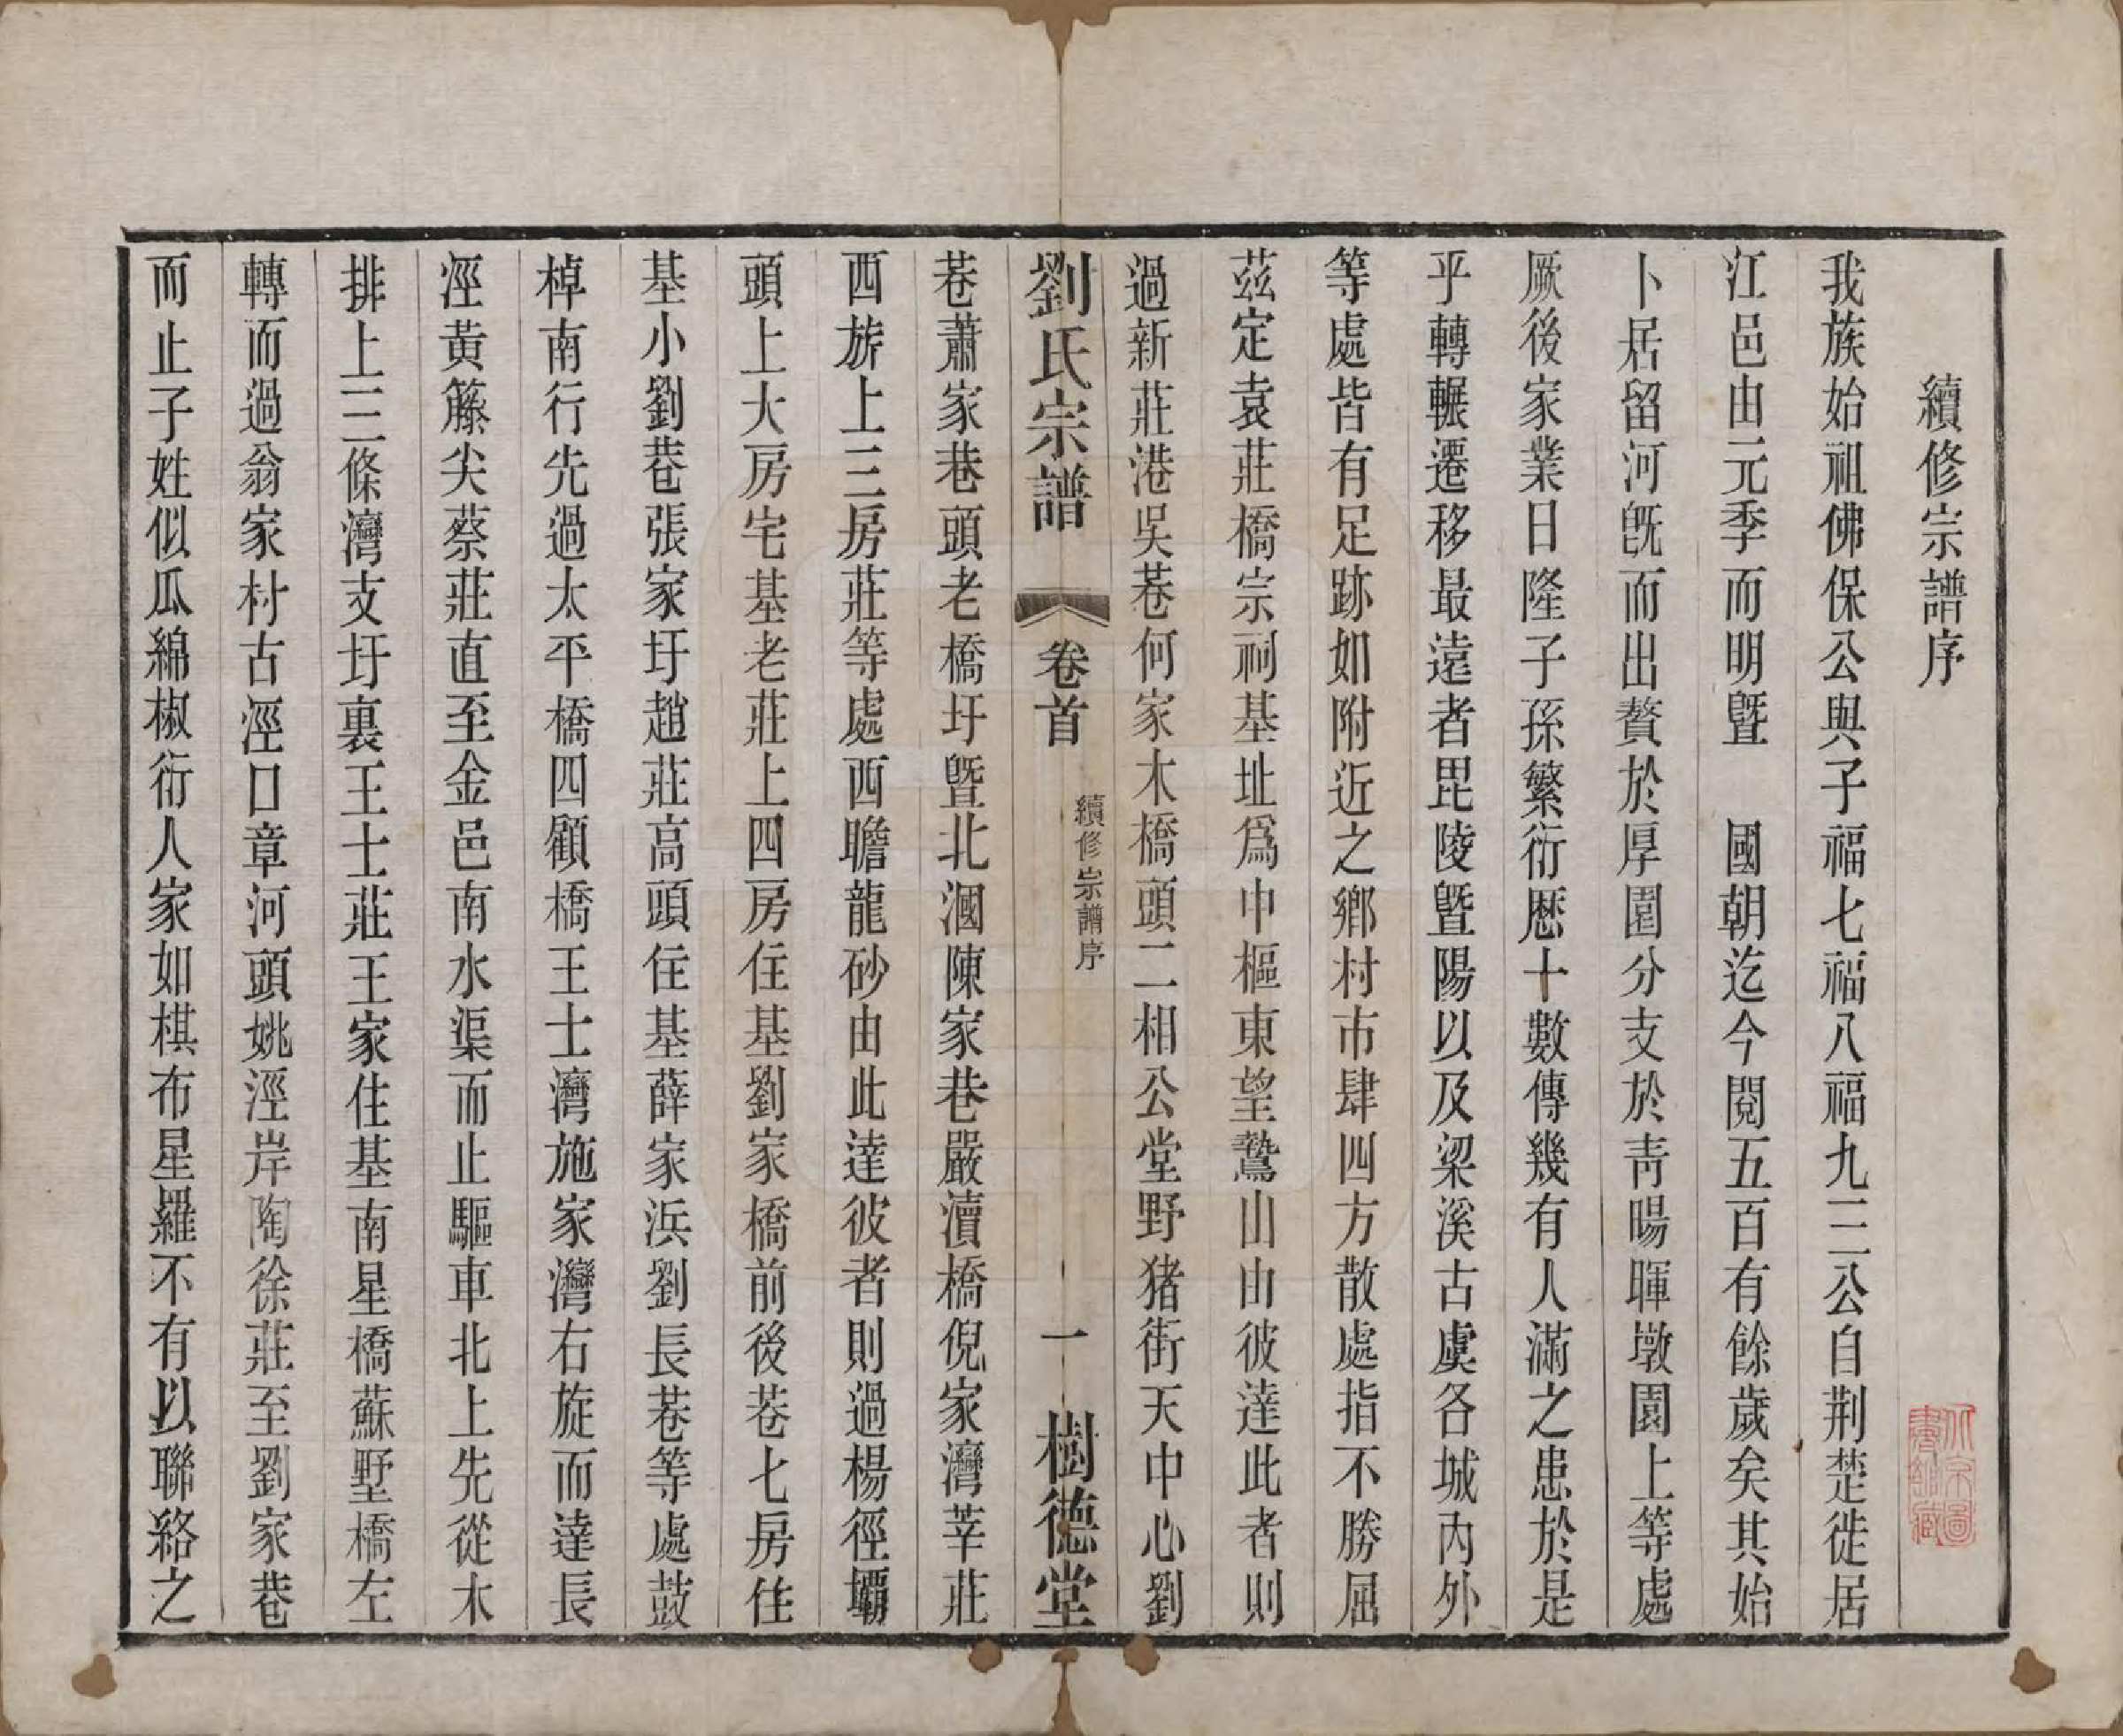 續修宗譜序
我族始祖佛保公與子福七福八福九三公自荆楚徙居
江邑由元季而明暨　國朝迄今閱五百有餘歲矣其始
卜居留河旣而出贅於厚園分支於靑暘暉墩園上等處
厥後家業日隆子孫繁衍歷十數傳幾有人滿之患於是
乎轉輾遷移最遠者毘陵暨陽以及梁溪古虞各城內外
等處皆有足跡如附近之鄉村市肆四方散處指不勝屈
茲定袁莊橋宗祠基址爲中樞東望鷙山由彼達此者則
過新莊港吳巷何家木橋頭二相公堂野猪街天中心劉
劉氏宗譜　卷首　續修宗譜序　一　樹德堂
巷蕭家巷頭老橋圩暨北漍陳家巷嚴瀆橋倪家灣莘莊
西族上三房莊等處西瞻龍砂由此達彼者則過楊徑壩
頭上大房宅基老莊上四房住基劉家橋前後巷七房住
基小劉巷張家圩趙莊高頭住基薛家浜劉長巷等處鼓
棹南行先過太平橋四顧橋王士灣施家灣右旋而達長
涇黃籐尖蔡莊直至金邑南水渠而止驅車北上先從木
排上三條灣支圩裏王士莊王家住基南星橋蘇墅橋左
轉而過翁家村古涇口章河頭姚涇岸陶徐莊至劉家巷
而止子姓似瓜綿椒衍人家如棋布星羅不有以聯絡之